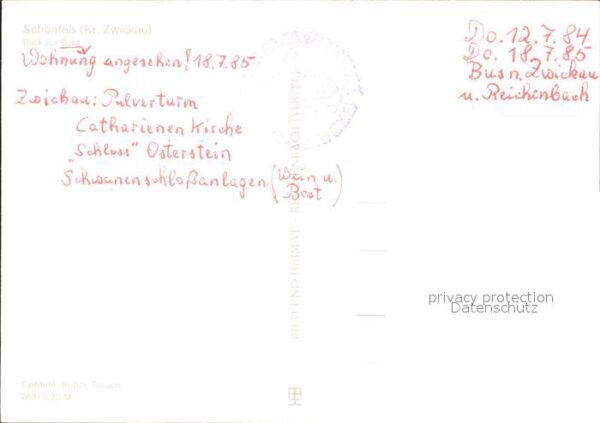 Schönfels (Kr. Zwickau)
Blick zur Burg
Wohnung angesehen! 18.7.85
Zwickau: Pulverturm
Catharienen Kirche
„Schloss" Osterstein
Schwanenschloßanlagen (Wein u. Brot)
Do. 12.7.84
Do. 18.7.85
Bus n. Zwickau
u. Reichenbach
BILD UND HEIMAT · REICHENBACH (VOGTL)
privacy protection
Datenschutz
Farbfoto: Kober, Treuen